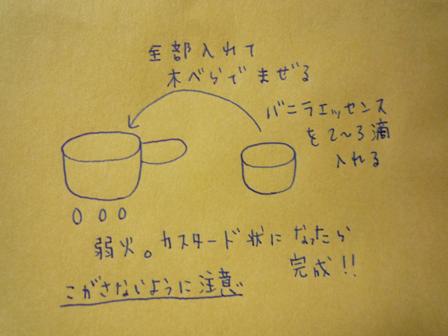 全部入れて
木べらでまぜる
バニラエッセンス
を2〜3滴
入れる
弱火。カスタード状になったら
完成!!
こがさないように注意